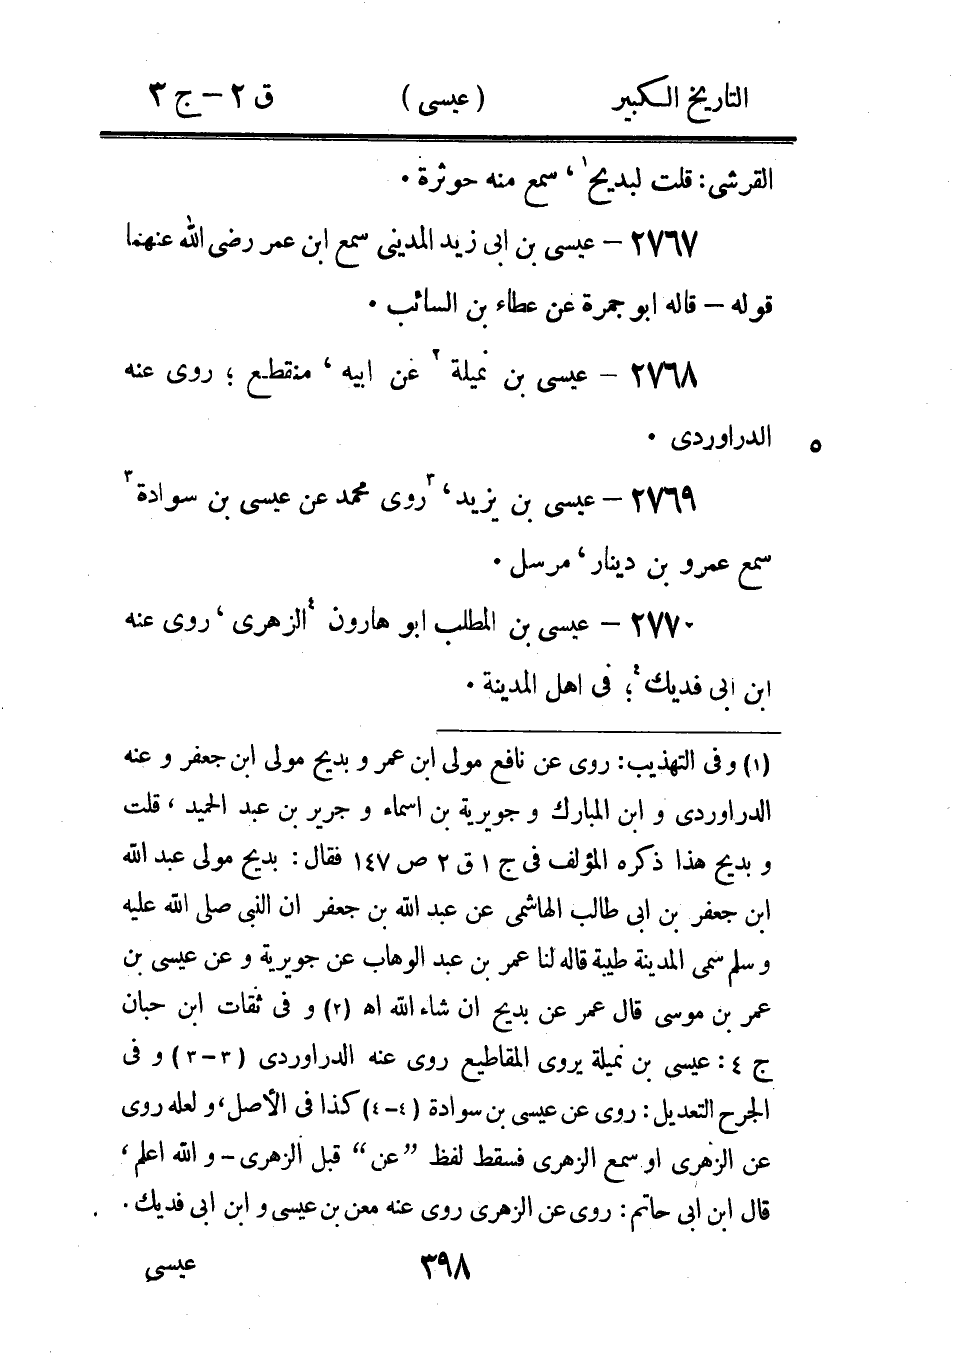 التاريخ الكبير (عيسى) ق ٢ - ج ٣
القرشى: قلت لبديح١، سمع منه حوثرة.
٢٧٦٧ - عيسى بن ابى زيد المدينى سمع ابن عمر رضى الله عنهما
قوله - قاله ابو جمرة عن عطاء بن السائب.
٢٧٦٨ - عيسى بن نميلة٢ عن ابيه، منقطع؛ روى عنه
الدراوردى. ٥
٢٧٦٩ - عيسى بن يزيد، ٣روى محمد عن عيسى بن سوادة٣
سمع عمرو بن دينار، مرسل.
٢٧٧٠ - عيسى بن المطلب ابو هارون ٤الزهرى، روى عنه
ابن ابى فديك٤؛ فى اهل المدينة.
(١) و فى التهذيب: روى عن نافع مولى ابن عمر و بديح مولى ابن جعفر و عنه
الدراوردى و ابن المبارك و جويرية بن اسماء و جرير بن عبد الحميد، قلت
و بديح هذا ذكره المؤلف فى ج ١ ق ٢ ص ١٤٧ فقال: بديح مولى عبد الله
ابن جعفر بن ابى طالب الهاشمى عن عبد الله بن جعفر ان النبى صلى الله عليه
و سلم سمى المدينة طيبة قاله لنا عمر بن عبد الوهاب عن جويرية و عن عيسى بن
عمر بن موسى قال عمر عن بديح ان شاء الله اه (٢) و فى ثقات ابن حبان
ج ٤: عيسى بن نميلة يروى المقاطيع روى عنه الدراوردى (٣-٣) و فى
الجرح التعديل: روى عن عيسى بن سوادة (٤-٤) كذا فى الأصل، و لعله روى
عن الزهرى او سمع الزهرى فسقط لفظ "عن" قبل الزهرى - و الله اعلم،
قال ابن ابى حاتم: روى عن الزهرى روى عنه معن بن عيسى و ابن ابى فديك.
٣٩٨ عيسى